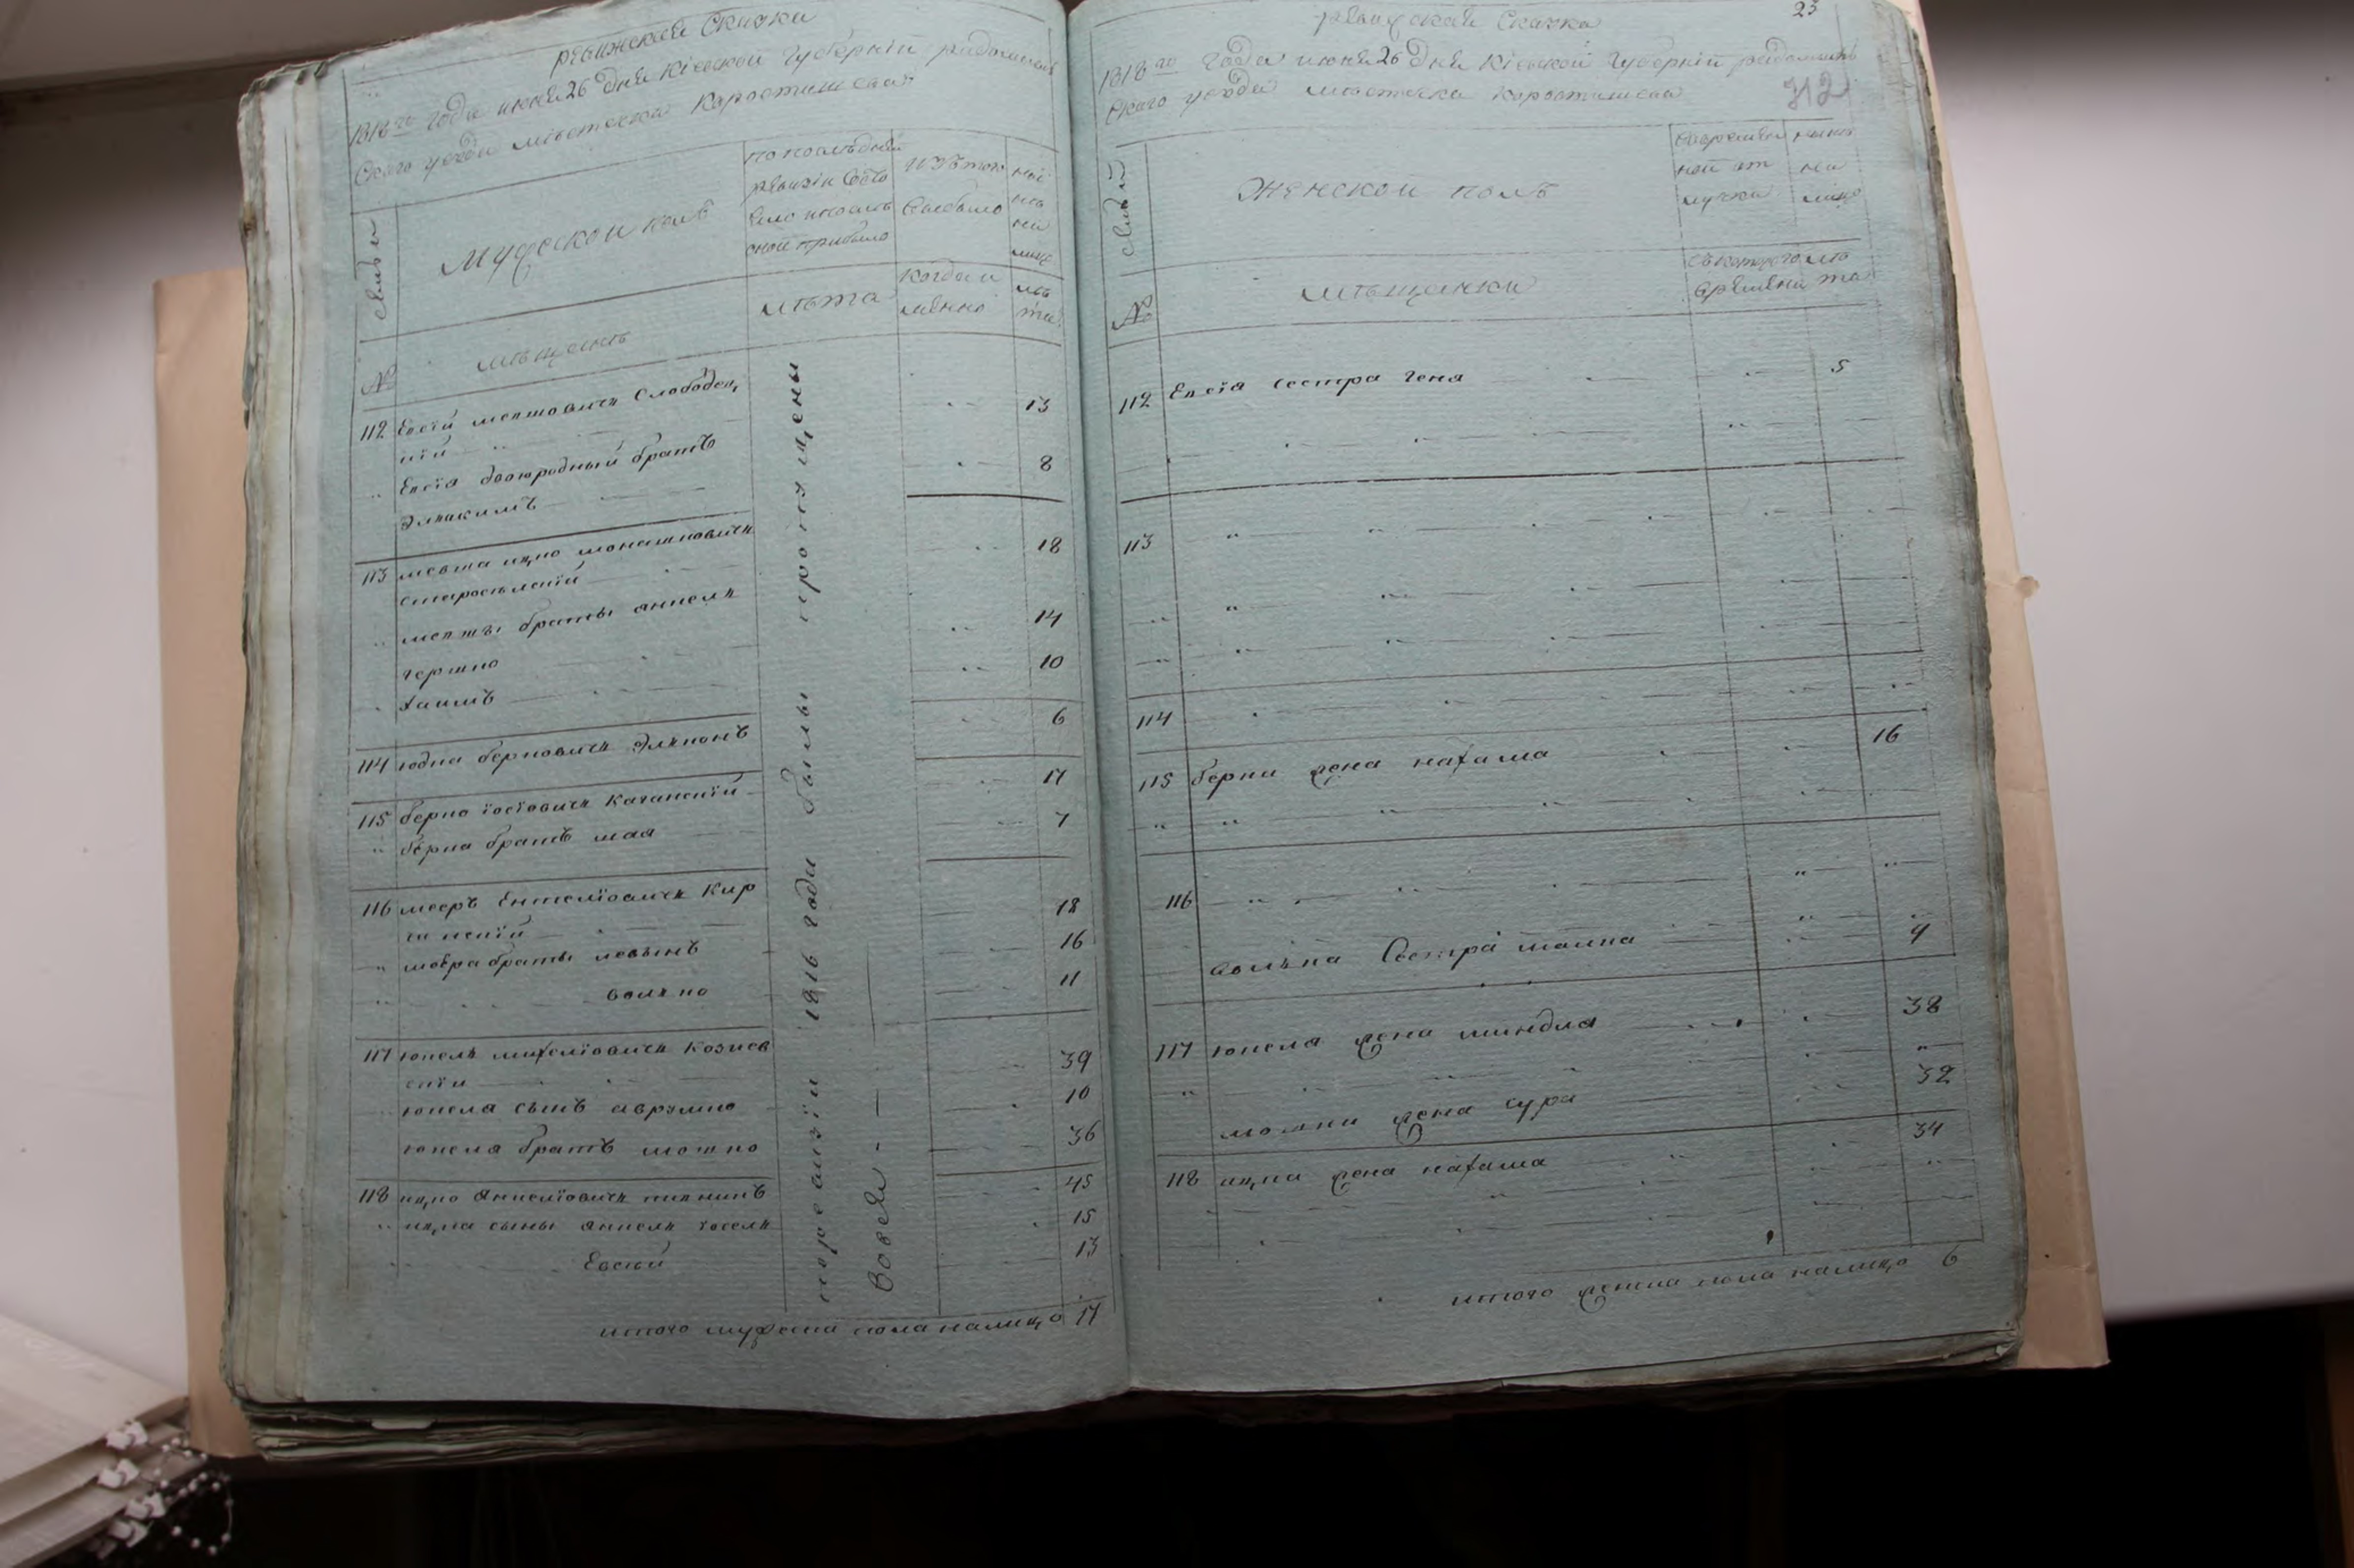 ревижская Сказка
1818го года июня 26 дня Кіевской губерніи радомысль
скаго уезда местечка Коростишева
семьи
Мужской полъ
по последней
ревизіи состо
яло и после
оной прибыло
изъ того
выбыло
ныне
на
лице
№
мещане
лета
когда и
менно
ле
та
112 Евсій мошковичъ Слободян
скій
13
Евсія двоюродный братъ
Элиакимъ
8
113 мошка ицко монашковичъ
старосельскій
18
мошки браты анчель
гершко
14
хаимъ
10
114 юдка берковичъ Эльконъ
6
115 берко іосіовичъ Качанскій
17
берка братъ мая
7
116 мееръ
18
меера браты левзинъ
16
волько
11
117 юкель михеліовичъ
скій
39
юкеля сынъ аврумко
10
юкеля братъ мошко
36
118 ицко Анчеліовичъ
45
ицка сыны анчель іосель
15
Евсій
13
прежде ревизіи 1816 года были пропущены
Вовсе
итого мужска пола налицо 17
ревижская Сказка
23
1818го года июня 26 дня Кіевской губерніи радомысль
скаго уезда местечка Коростишева
712
семьи
Женской полъ
во временной от
лучке
ныне
на
лице
№
мещанки
съ котораго
времени
ле
та
112 Евсія сестра геня 5
113
114
115 берки жена нахама 16
116
волька Сестра малка 9
117 юкеля жена миндля 38
мошки жена сура 32
118 ицки жена нахама 34
итого женска пола налицо 6